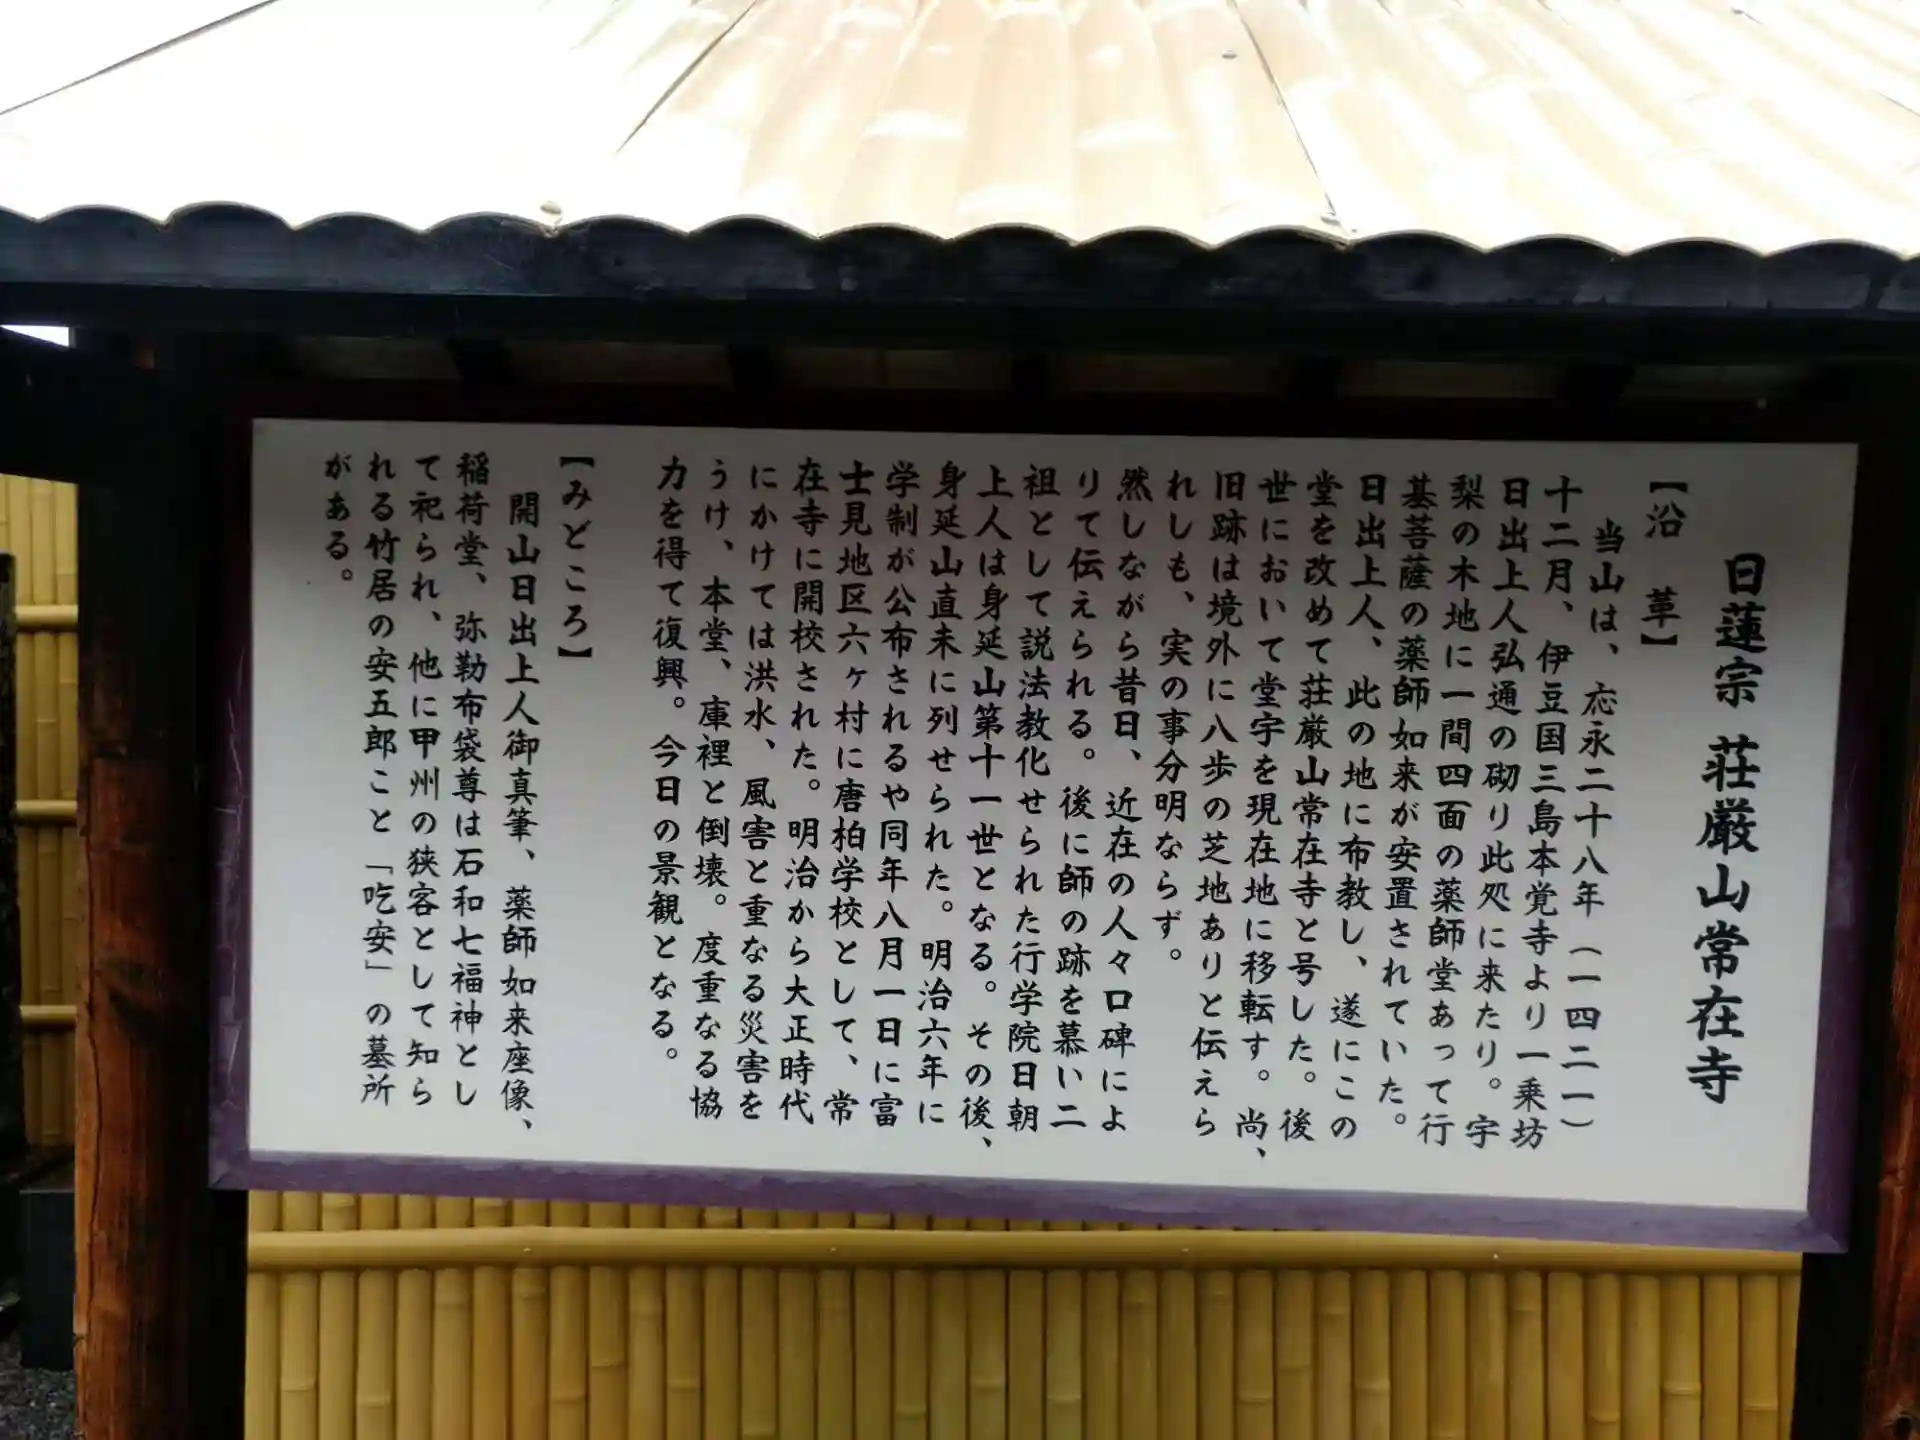 日蓮宗 荘厳山常在寺
【沿 革】
当山は、応永二十八年（一四二一）
十二月、伊豆国三島本覚寺より一乗坊
日出上人弘通の砌り此処に来たり。宇
梨の木地に一間四面の薬師堂あって行
基菩薩の薬師如来が安置されていた。
日出上人、此の地に布教し、遂にこの
堂を改めて荘厳山常在寺と号した。後
世において堂宇を現在地に移転す。尚、
旧跡は境外に八歩の芝地ありと伝えら
れしも、実の事分明ならず。
然しながら昔日、近在の人々口碑によ
りて伝えられる。後に師の跡を慕い二
祖として説法教化せられた行学院日朝
上人は身延山第十一世となる。その後、
身延山直末に列せられた。明治六年に
学制が公布されるや同年八月一日に富
士見地区六ヶ村に唐柏学校として、常
在寺に開校された。明治から大正時代
にかけては洪水、風害と重なる災害を
うけ、本堂、庫裡と倒壊。度重なる協
力を得て復興。今日の景観となる。
【みどころ】
開山日出上人御真筆、薬師如来座像、
稲荷堂、弥勒布袋尊は石和七福神とし
て祀られ、他に甲州の狭客として知ら
れる竹居の安五郎こと「吃安」の墓所
がある。